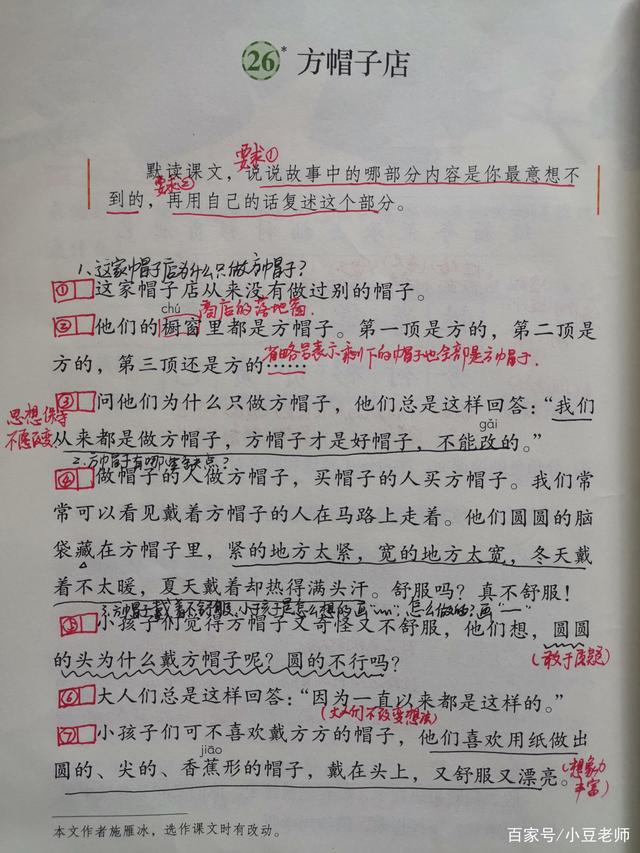 26* 方帽子店
要求①
默读课文，说说故事中的哪部分内容是你最意想不
要求②
到的，再用自己的话复述这个部分。
1、这家帽子店为什么只做方帽子？
① 这家帽子店从来没有做过别的帽子。
chú 商店的落地窗.
② 他们的橱窗里都是方帽子。第一顶是方的，第二顶是
方的，第三顶还是方的…… 省略号表示剩下的帽子也全部是方帽子.
③ 问他们为什么只做方帽子，他们总是这样回答：“我们
思想保守 不愿改变
gǎi
从来都是做方帽子，方帽子才是好帽子，不能改的。”
2.方帽子有哪些缺点？
④ 做帽子的人做方帽子，买帽子的人买方帽子。我们常
常可以看见戴着方帽子的人在马路上走着。他们圆圆的脑
袋藏在方帽子里，紧的地方太紧，宽的地方太宽，冬天戴
着不太暖，夏天戴着却热得满头汗。舒服吗？真不舒服！
3.方帽子戴着不舒服、小孩子是怎么想的画“﹏”；怎么做的？画“—”
⑤ 小孩子们觉得方帽子又奇怪又不舒服，他们想，圆圆
的头为什么戴方帽子呢？圆的不行吗？
(敢于质疑)
⑥ 大人们总是这样回答：“因为一直以来都是这样的。”
(大人们不改变想法)
⑦ 小孩子们可不喜欢戴方方的帽子，他们喜欢用纸做出
jiāo
圆的、尖的、香蕉形的帽子，戴在头上，又舒服又漂亮。
(想象力丰富)
本文作者施雁冰，选作课文时有改动。
百家号/小豆老师